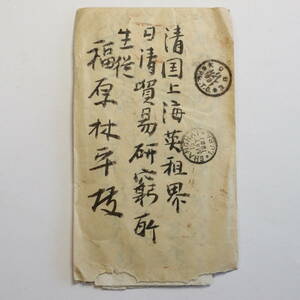 清国上海英租界
日清貿易研究所
生徒
福原林平
SHANGHAI